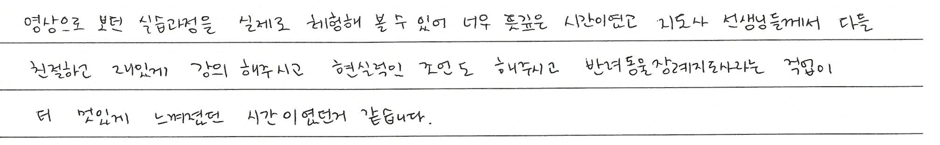 영상으로 보던 실습과정을 실제로 체험해 볼 수 있어 너무 뜻깊은 시간이였고 지도사 선생님들께서 다들
친절하고 재밌게 강의 해주시고 현실적인 조언도 해주시고 반려동물장례지도사라는 직업이
더 멋있게 느껴졌던 시간이였던거 같습니다.